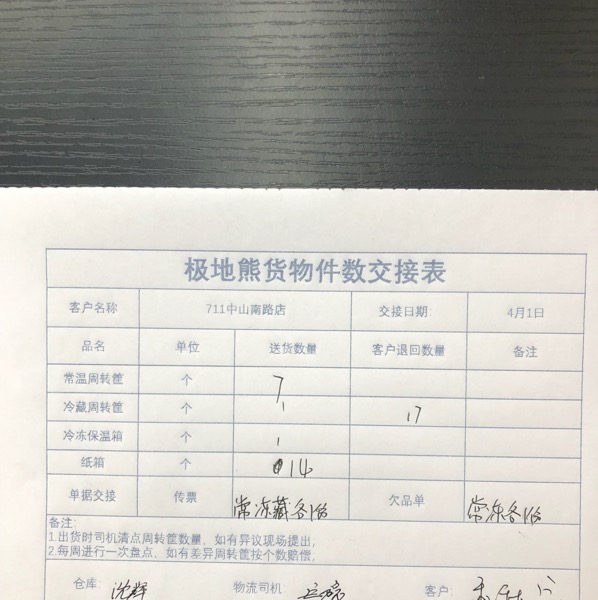 极地熊货物件数交接表
客户名称 711中山南路店 交接日期: 4月1日
品名 单位 送货数量 客户退回数量 备注
常温周转筐 个 7
冷藏周转筐 个 1 17
冷冻保温箱 个 1
纸箱 个 14
单据交接 传票 常冻藏各1份 欠品单 常冻各1份
备注:
1.出货时司机清点周转筐数量,如有异议现场提出;
2.每周进行一次盘点,如有差异周转筐按个数赔偿;
仓库: 沈辉 物流司机: 客户: